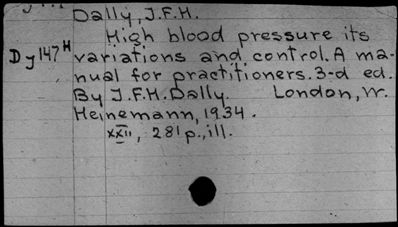 Dally, J.F.H.
High blood pressure its
Dy147H variations and control. A ma-
nual for practitioners. 3-d ed.
By J.F.H. Dally. London, W.
Heinemann, 1934.
XXII, 281p., ill.